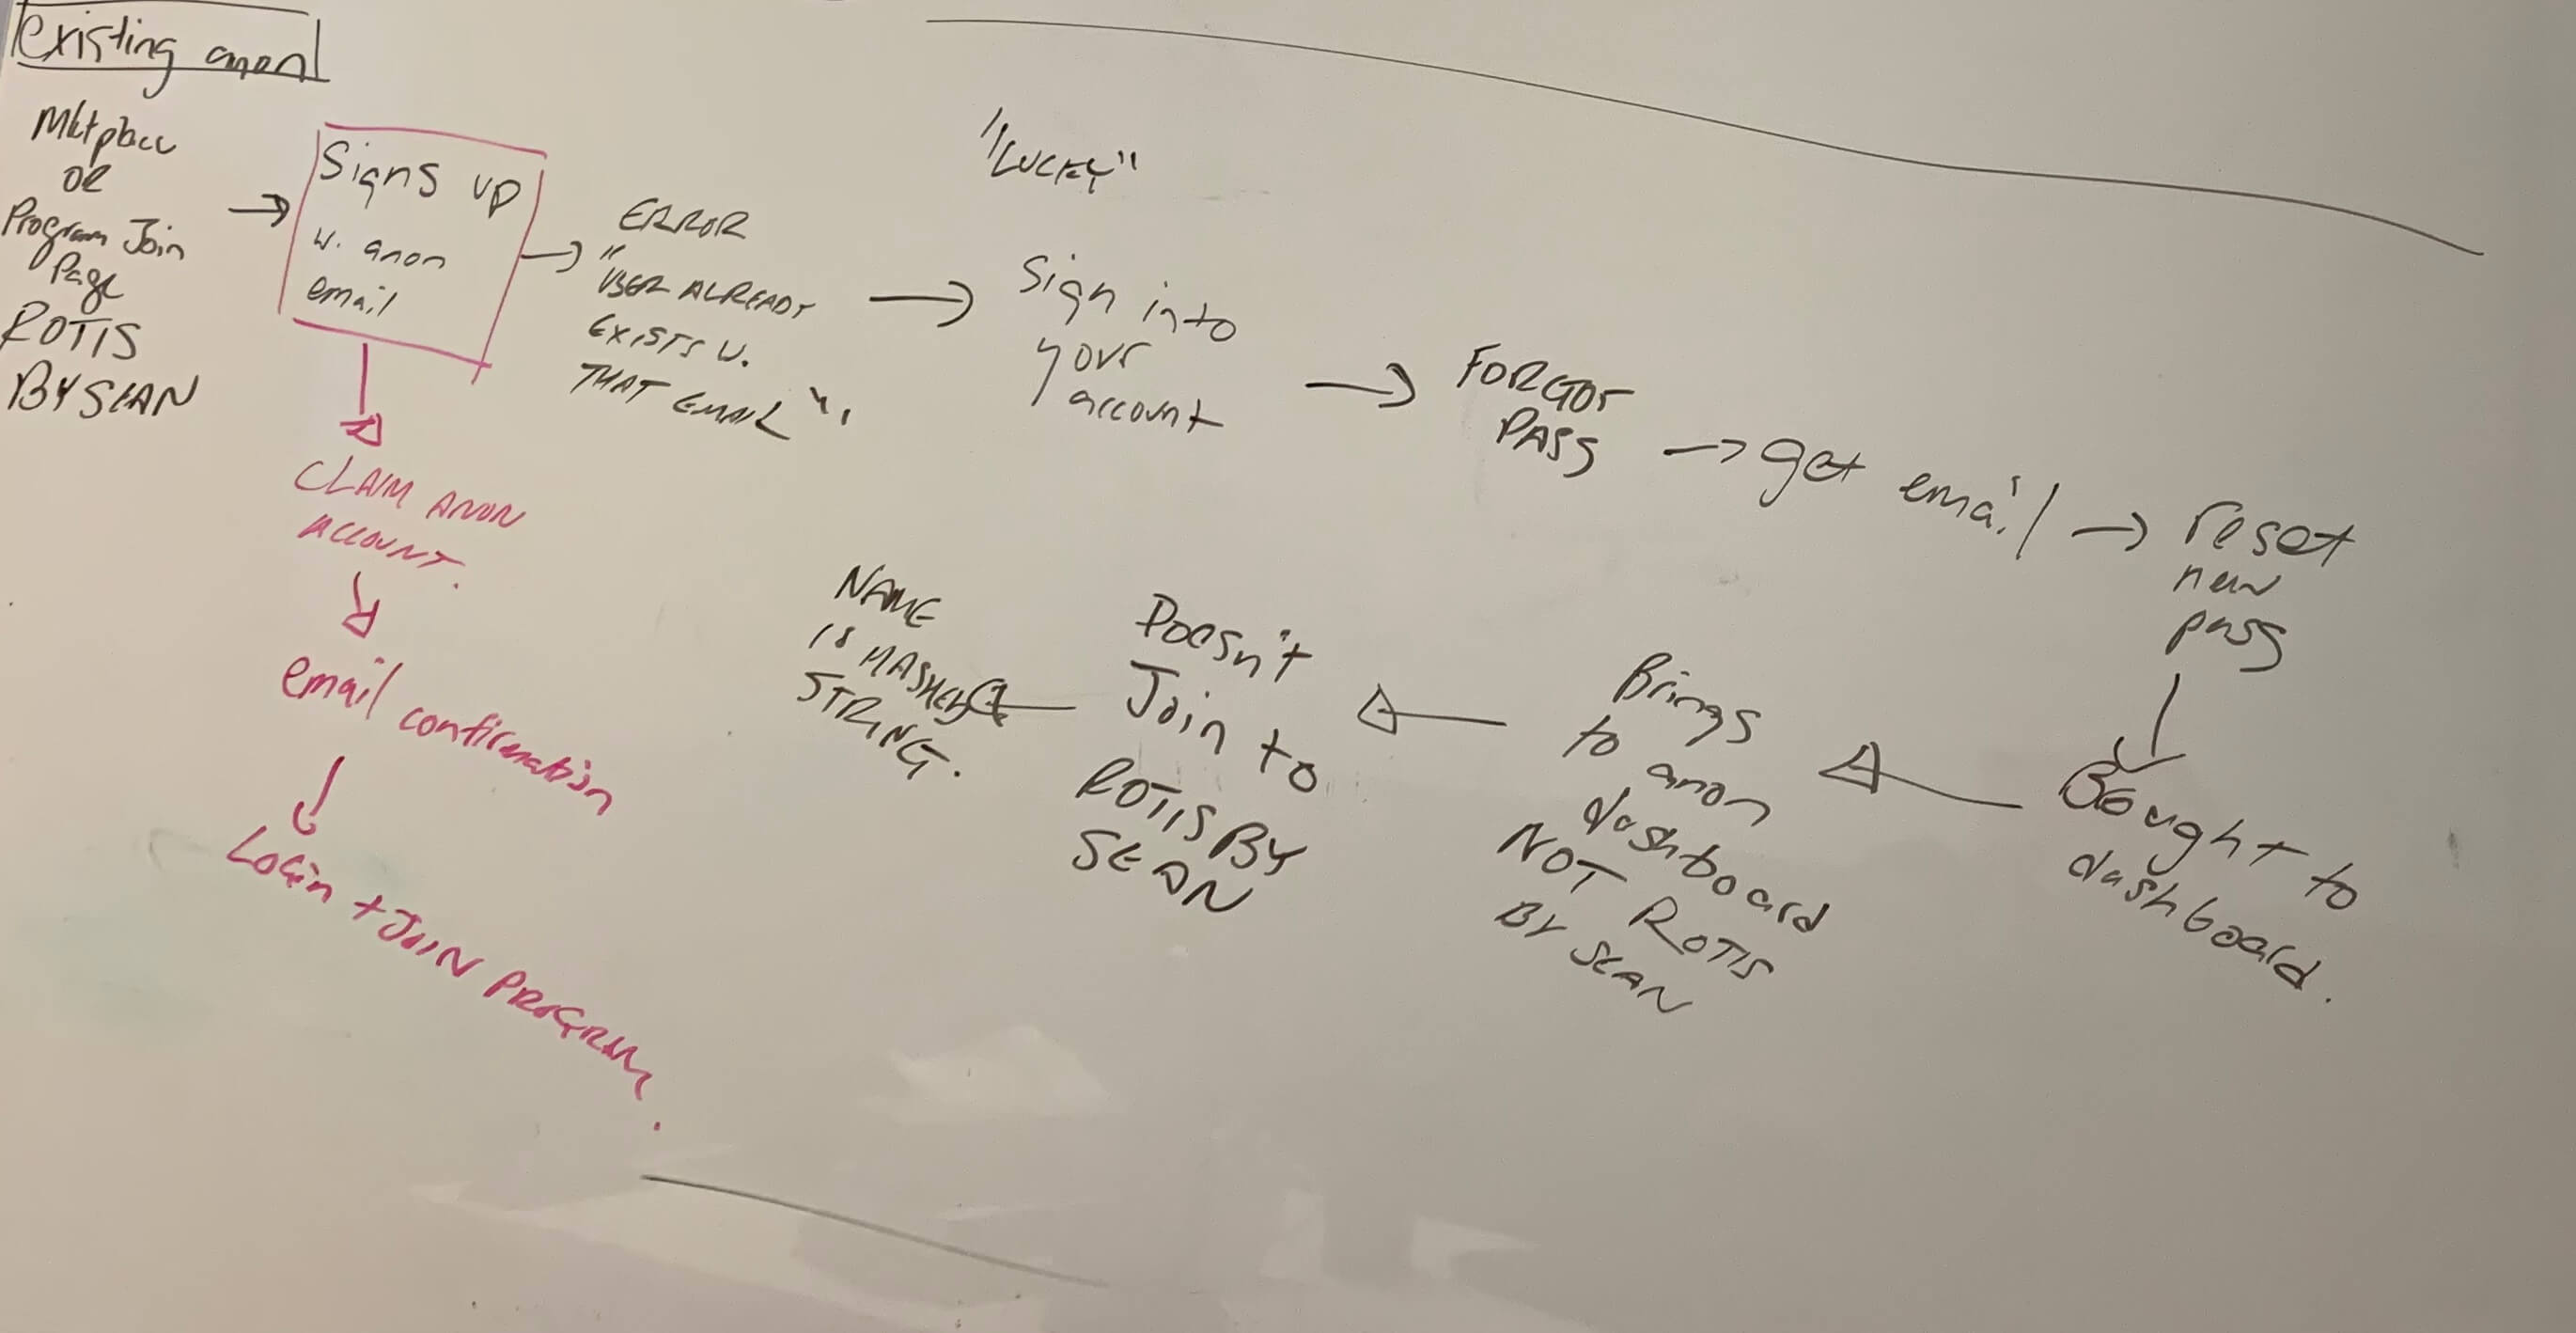 existing anon
Mktplace
OR
Program Join
Page
ROTIS
BY SEAN
Signs up
w. anon
email
ERROR
"USER ALREADY
EXISTS W.
THAT EMAIL".
"LUCKY"
Sign into
your
account
FORGOT
PASS
get email
reset
new
pass
Bought to
dashboard.
Brings
to anon
dashboard
NOT ROTIS
BY SEAN
Doesn't
Join to
ROTIS BY
SEAN
NAME
IS HASHED
STRING.
CLAIM ANON
ACCOUNT.
email confirmation
Login + JOIN PROGRAM.